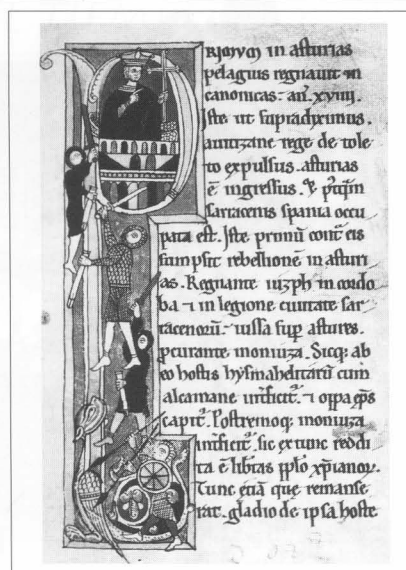 PRIMUM in asturias
pelagius regnauit in
canonicas· añ· xviiii·
Iste ut supradiximus·
a uitizane rege de tole
to expulsus· asturias
ē ingressus· & p̄tq̄m
sarracenis spania occu
pata est· Iste primū cont̄ eis
sumpsit rebellione in asturi
as· Regnante iuzph in cordo
ba ⁊ in legione ciuitate sar
racenorū· iussa sup astures·
p̄curante monnuza· Sicq; ab
eo hostis hysmahelitarū cum
alcamane int̄ficit᷑· ⁊ oppa ep̄s
capit᷑· Postremoq; monnuza
int̄ficit᷑· sic ex tunc reddi
ta ē lib̄tas pplo xp̄ianor·
Tunc etiā que remanse
rat· gladio de ipsa hoste